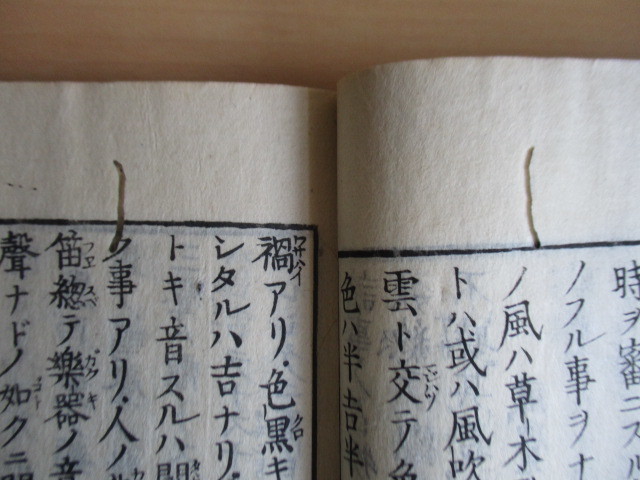 時ヲ審ニスル
ノフル事ヲナ
ノ風ハ草木
トハ或ハ風吹
雲ト交テ
色ハ半吉半
禍アリ色黒キ
シタルハ吉ナリ
トキ音スルハ
事アリ人ノ
笛總テ樂器ノ音
聲ナドノ如クニ